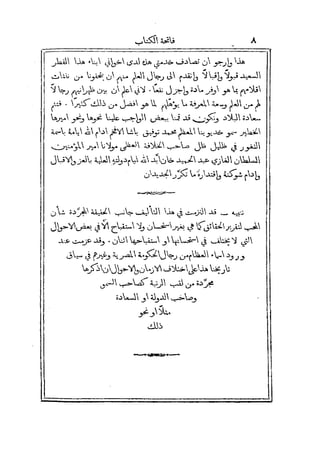 ٨ فاتحة الكتاب
هذا وارجو ان تصادف خدمتي هذه لدى اخواني ابناء هذا القطر
السعيد قبولاً واقبالاً واتقدم الى رجال العلم منهم ان يتحفونا من نفثات
اقلامهم بما هو اوفر مادة واجزل نفعًا. لاني اعلم ان بين ظهرانيهم رجالاً
لهم من العلم وسعة المعرفة ما يؤهلهم لما هو افضل من ذلك كثيرًا. فتتم
سعادة البلاد ونكون قد قمنا ببعض الواجب علينا نحوها ونحو اميرها
الخطير سمو خديوينا المعظم محمد توفيق باشا الافخم ادام الله ايامه باسمة
الثغور في ظليل ظل صاحب الخلافة العظمى مولانا امير المؤمنين
السلطان الغازي عبد الحميد خان أيد الله ايام دولته العلية بالعز والاقبال
وادام شوكته واقتداره ما تكرر الجديدان
تنبيه — قد التزمت في هذا التأليف جانب الحقيقة المجردة شأن
المحب لتقرير الحقائق كما هي بغير استحسان ولا استقباح الا في بعض الاحوال
التي لا يختلف في استحسانها او استقباحها اثنان. وقد عزمت عند
ورود اسماء العظام من رجال الحكومة المصرية وغيرهم في سياق
تاريخنا هذا على اختلاف الازمان والاحوال ان اذكرها
مجردة من لقب الرتبة كصاحب السمو
وصاحب الدولة او السعادة
مثلاً او نحو
ذلك